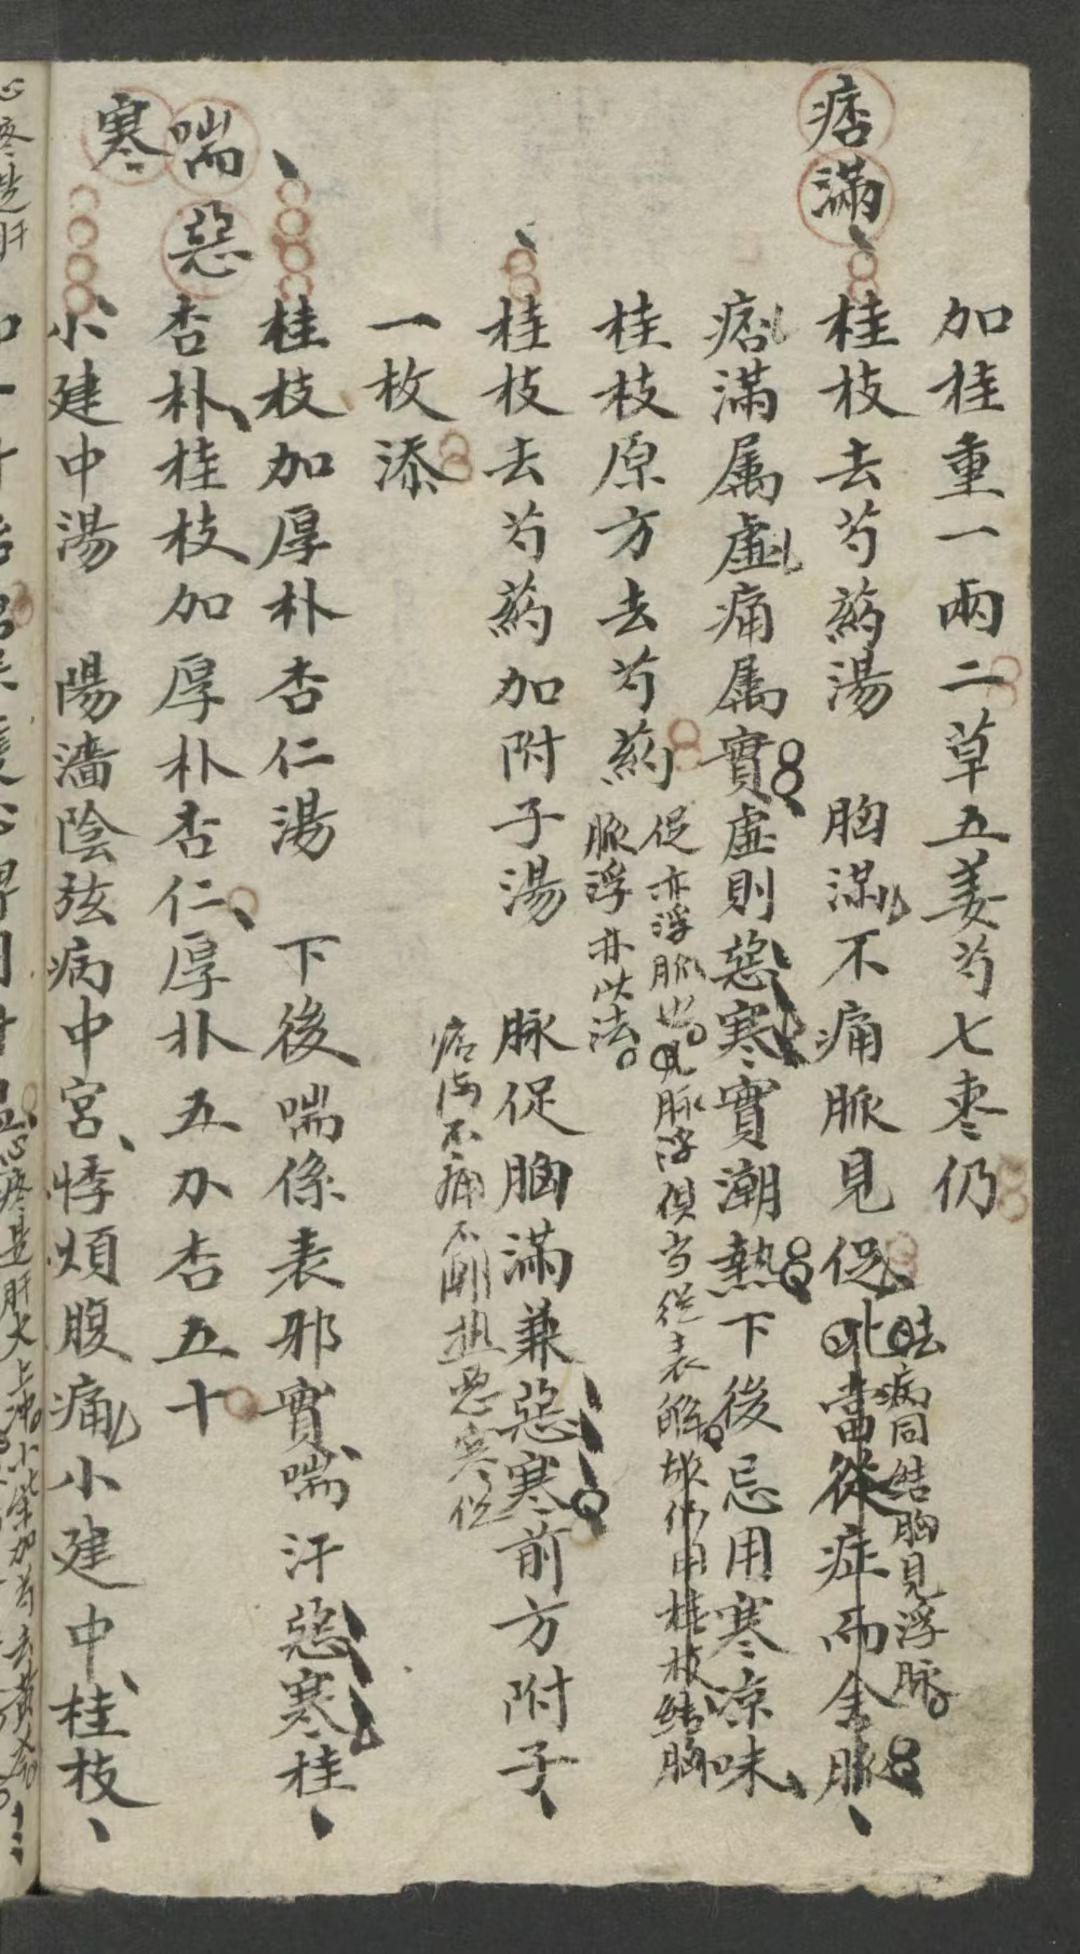 加桂重一兩二草五姜芍七枣仍
痞滿
桂枝去芍葯湯　胸滿不痛脈見促此當從症而舍脈
病同結胸見浮脉
痞滿属虛痛属實虛則惡寒實潮熱下後忌用寒凉味
桂枝原方去芍葯
促亦浮脈也見脉浮俱当從表解故仍用桂枝結胸
脈浮亦此法
桂枝去芍葯加附子湯　脉促胸滿兼惡寒前方附子
痞滿不痛不潮热惡寒促
一枚添
喘惡
寒
桂枝加厚朴杏仁湯　下後喘係表邪實喘汗惡寒桂
杏朴桂枝加厚朴杏仁厚朴五分杏五十
小建中湯　陽濇陰弦病中宮悸煩腹痛小建中桂枝
心疼是肝火上冲小柴加芍去黄芩